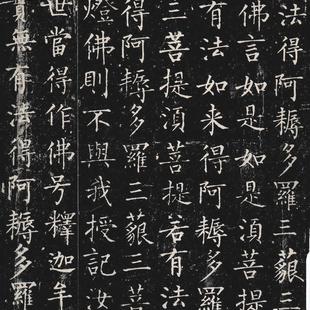 法得阿耨多羅三藐三
佛言如是如是湏菩提
有法如来得阿耨多羅
三菩提湏菩提若有法
得阿耨多羅三藐三菩
燈佛則不與我授記汝
世當得作佛号釋迦牟
實無有法得阿耨多羅